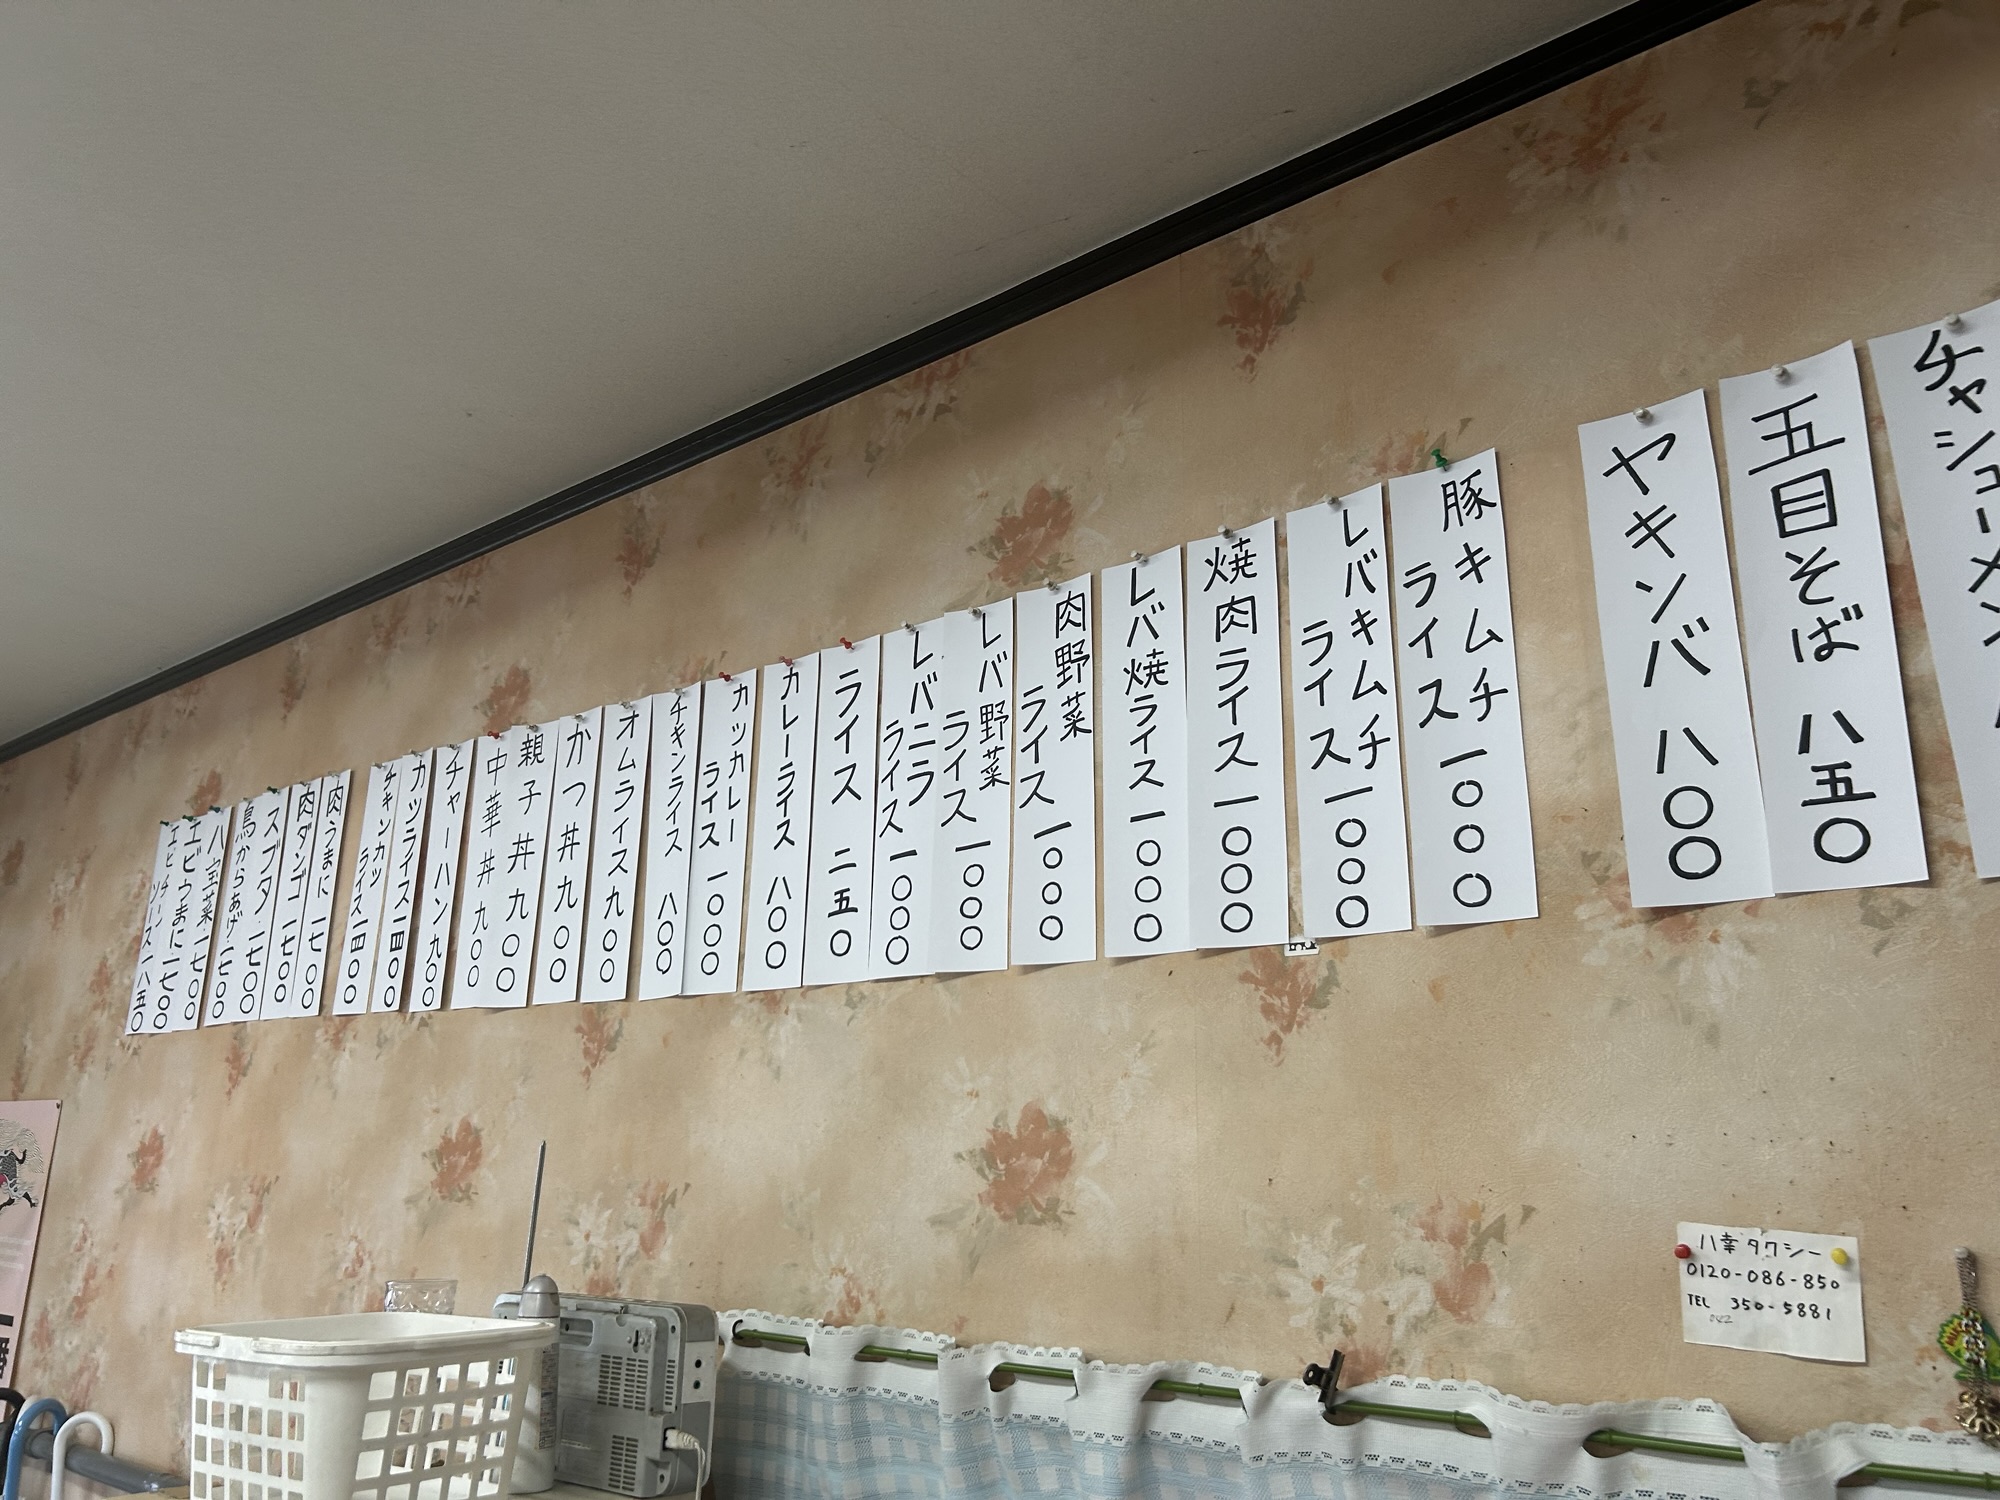 チャシューメン
五目そば 八五〇
ヤキソバ 八〇〇
豚キムチ
ライス 一〇〇〇
レバキムチ
ライス 一〇〇〇
焼肉ライス 一〇〇〇
レバ焼ライス 一〇〇〇
肉野菜
ライス 一〇〇〇
レバ野菜
ライス 一〇〇〇
レバニラ
ライス 一〇〇〇
ライス 二五〇
カレーライス 八〇〇
カツカレー
ライス 一〇〇〇
チキンライス 八〇〇
オムライス 九〇〇
かつ丼 九〇〇
親子丼 九〇〇
中華丼 九〇〇
チャーハン 九〇〇
カツライス 一四〇〇
チキンカツ
ライス 一四〇〇
肉うまに 一七〇〇
肉ダンゴ 一七〇〇
スブタ 一七〇〇
鳥からあげ 一七〇〇
八宝菜 一七〇〇
エビうまに 一七〇〇
エビチリ
ソース 一八五〇
八幸タクシー
0120-086-850
TEL 350-5881
042